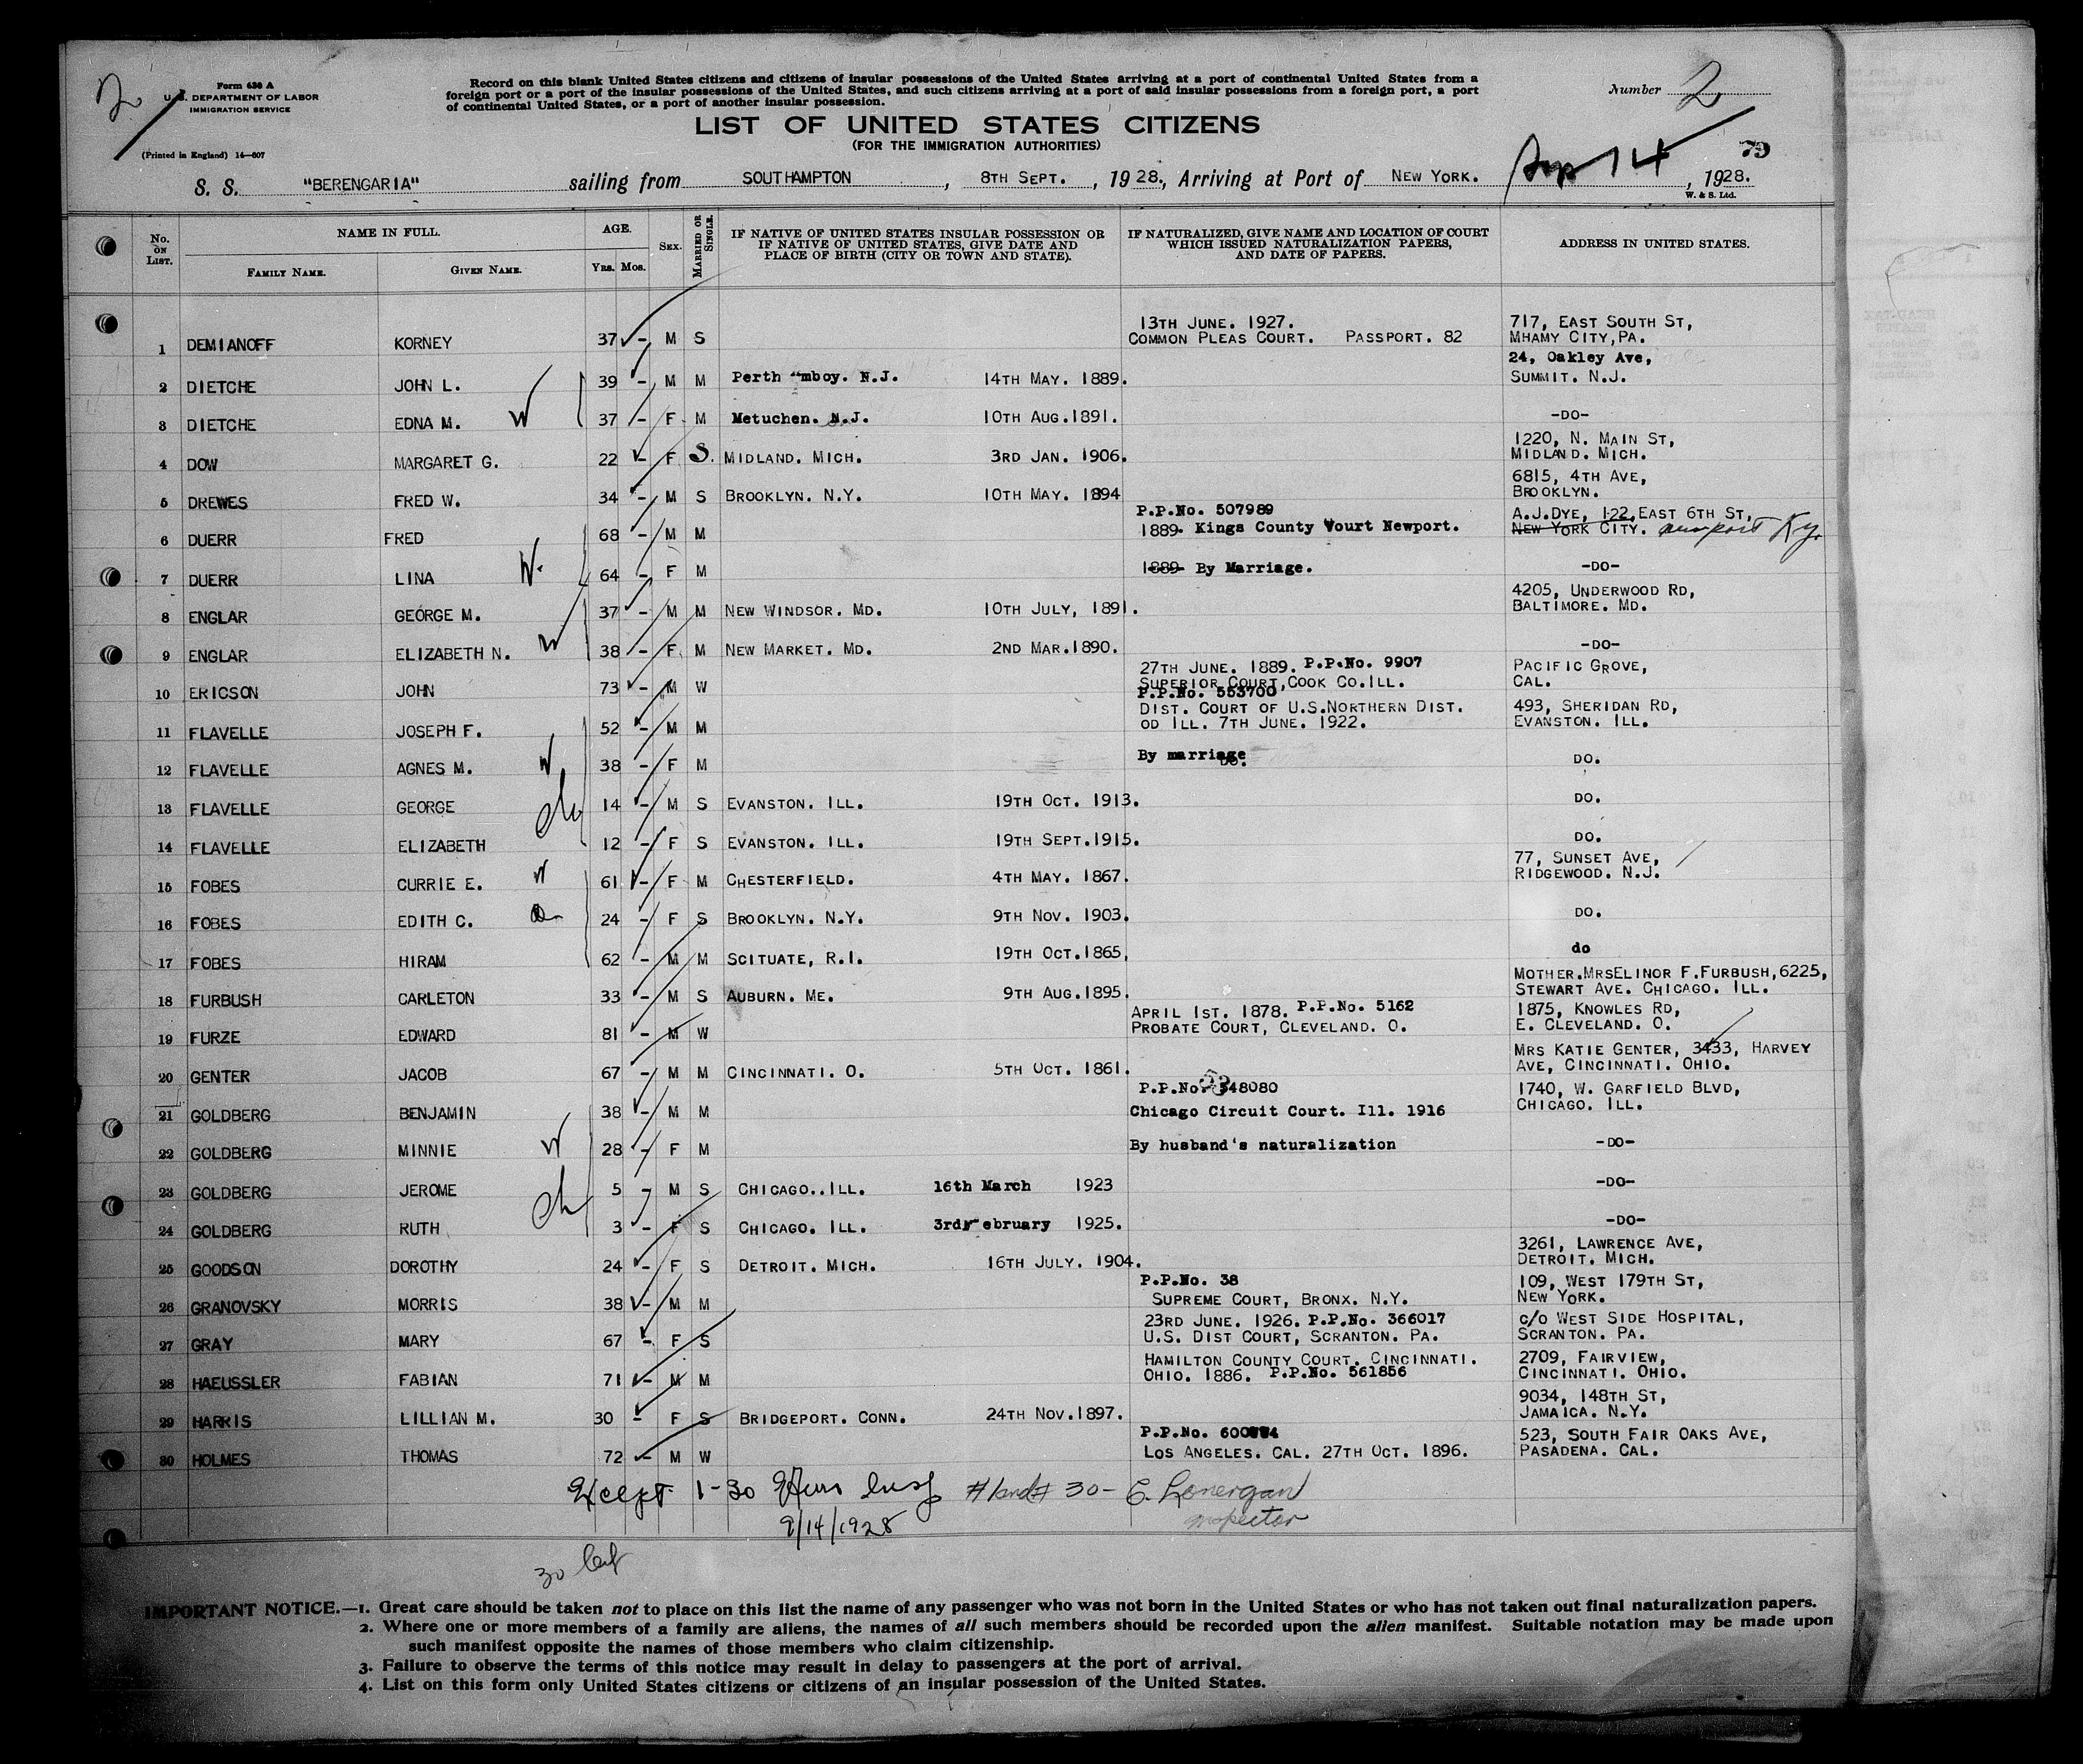 2
Form 630 A
U.S. DEPARTMENT OF LABOR
IMMIGRATION SERVICE
(Printed in England) 14—607
Record on this blank United States citizens and citizens of insular possessions of the United States arriving at a port of continental United States from a
foreign port or a port of the insular possessions of the United States, and such citizens arriving at a port of said insular possessions from a foreign port, a port
of continental United States, or a port of another insular possession.
Number 2
LIST OF UNITED STATES CITIZENS
(FOR THE IMMIGRATION AUTHORITIES)
79
S. S. "BERENGARIA" sailing from SOUTHAMPTON, 8TH SEPT., 1928., Arriving at Port of NEW YORK. Sep 14, 1928.
W. & S. Ltd.
No. ON LIST. NAME IN FULL. FAMILY NAME. GIVEN NAME. AGE. YRS. MOS. SEX. MARRIED OR SINGLE.
IF NATIVE OF UNITED STATES INSULAR POSSESSION OR
IF NATIVE OF UNITED STATES, GIVE DATE AND
PLACE OF BIRTH (CITY OR TOWN AND STATE).
IF NATURALIZED, GIVE NAME AND LOCATION OF COURT
WHICH ISSUED NATURALIZATION PAPERS,
AND DATE OF PAPERS.
ADDRESS IN UNITED STATES.
13TH JUNE. 1927. 717, EAST SOUTH ST,
1 DEMIANOFF KORNEY 37 - M S COMMON PLEAS COURT. PASSPORT. 82 MHAMY CITY, PA.
24, Oakley Ave,
2 DIETCHE JOHN L. 39 - M M Perth "mboy. N.J. 14TH MAY. 1889. SUMMIT. N.J.
3 DIETCHE EDNA M. W 37 - F M Metuchen. N.J. 10TH AUG.1891. -DO-
1220, N. MAIN ST,
4 DOW MARGARET G. 22 - F S. MIDLAND. MICH. 3RD JAN. 1906. MIDLAND. MICH.
6815, 4TH AVE,
5 DREWES FRED W. 34 - M S BROOKLYN. N.Y. 10TH MAY. 1894 BROOKLYN.
P.P.No. 507989 A.J.DYE, 122, EAST 6TH ST,
6 DUERR FRED 68 - M M 1889- Kings County Vourt Newport. NEW YORK CITY. Newport Ky.
7 DUERR LINA W. 64 - F M 1889- By Marriage. -DO-
4205, UNDERWOOD RD,
8 ENGLAR GEORGE M. 37 - M M NEW WINDSOR. MD. 10TH JULY, 1891. BALTIMORE. MD.
9 ENGLAR ELIZABETH N. W 38 - F M NEW MARKET. MD. 2ND MAR.1890. -DO-
27TH JUNE. 1889. P.P.No. 9907 PACIFIC GROVE,
10 ERICSON JOHN 73 - M W SUPERIOR COURT, COOK CO.ILL. CAL.
P.P.No. 553700
DIST. COURT OF U.S.NORTHERN DIST. 493, SHERIDAN RD,
11 FLAVELLE JOSEPH F. 52 - M M OD ILL. 7TH JUNE. 1922. EVANSTON. ILL.
12 FLAVELLE AGNES M. W 38 - F M By marriage DO. DO.
13 FLAVELLE GEORGE ch 14 - M S EVANSTON. ILL. 19TH OCT. 1913. DO.
14 FLAVELLE ELIZABETH 12 - F S EVANSTON. ILL. 19TH SEPT.1915. DO.
77, SUNSET AVE,
15 FOBES CURRIE E. W 61 - F M CHESTERFIELD. 4TH MAY. 1867. RIDGEWOOD. N.J.
16 FOBES EDITH C. 24 - F S BROOKLYN. N.Y. 9TH NOV. 1903. DO.
17 FOBES HIRAM 62 - M M SCITUATE, R.I. 19TH OCT.1865, do
MOTHER.MRSELINOR F.FURBUSH,6225,
18 FURBUSH CARLETON 33 - M S AUBURN. ME. 9TH AUG.1895. STEWART AVE. CHICAGO. ILL.
APRIL 1ST. 1878. P.P.No. 5162 1875, KNOWLES RD,
19 FURZE EDWARD 81 - M W PROBATE COURT, CLEVELAND. O. E. CLEVELAND. O.
MRS KATIE GENTER, 3433, HARVEY
20 GENTER JACOB 67 - M M CINCINNATI. O. 5TH OCT. 1861. AVE, CINCINNATI. OHIO.
P.P.No. 548080 1740, W. GARFIELD BLVD,
21 GOLDBERG BENJAMIN 38 - M M Chicago Circuit Court. Ill. 1916 CHICAGO. ILL.
22 GOLDBERG MINNIE W 28 - F M By husband's naturalization -DO-
23 GOLDBERG JEROME ch 5 - M S CHICAGO..ILL. 16th March 1923 -DO-
24 GOLDBERG RUTH 3 - F S CHICAGO. ILL. 3rd February 1925. -DO-
3261, LAWRENCE AVE,
25 GOODSON DOROTHY 24 - F S DETROIT. MICH. 16TH JULY. 1904. DETROIT. MICH.
P.P.No. 38 109, WEST 179TH ST,
26 GRANOVSKY MORRIS 38 - M M SUPREME COURT, BRONX. N.Y. NEW YORK.
23RD JUNE. 1926. P.P.No. 366017 C/O WEST SIDE HOSPITAL,
27 GRAY MARY 67 - F S U.S. DIST COURT, SCRANTON. PA. SCRANTON. PA.
HAMILTON COUNTY COURT. CINCINNATI. 2709, FAIRVIEW,
28 HAEUSSLER FABIAN 71 - M M OHIO. 1886. P.P.No. 561856 CINCINNATI. OHIO.
9034, 148TH ST,
29 HARRIS LILLIAN M. 30 - F S BRIDGEPORT. CONN. 24TH NOV.1897. JAMAICA. N.Y.
P.P.No. 523, SOUTH FAIR OAKS AVE,
30 HOLMES THOMAS 72 - M W LOS ANGELES. CAL. 27TH OCT. 1896. PASADENA. CAL.
Except 1-30 #1 and # 30- E. Lonergan
9/14/1928 Inspector
30
IMPORTANT NOTICE.—1. Great care should be taken not to place on this list the name of any passenger who was not born in the United States or who has not taken out final naturalization papers.
2. Where one or more members of a family are aliens, the names of all such members should be recorded upon the alien manifest. Suitable notation may be made upon
such manifest opposite the names of those members who claim citizenship.
3. Failure to observe the terms of this notice may result in delay to passengers at the port of arrival.
4. List on this form only United States citizens or citizens of an insular possession of the United States.